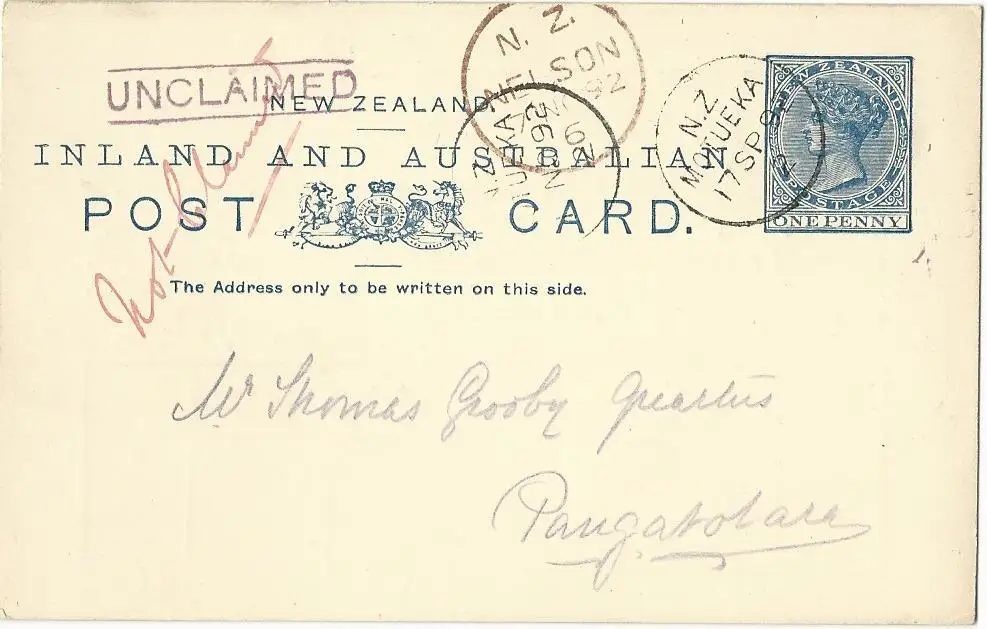 UNCLAIMED
NEW ZEALAND
INLAND AND AUSTRALIAN
POST CARD.
The Address only to be written on this side.
N. Z.
NELSON
92
N.Z
MOTUEKA
17 SP 92
NEW ZEALAND
POSTAGE
ONE PENNY
Not Claimed
Mr Thomas Grooby
Pangatotara